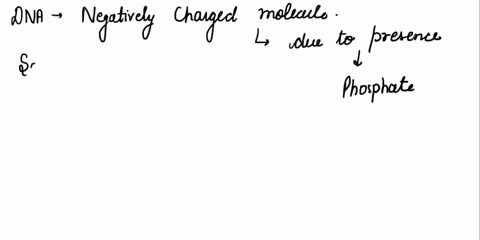 DNA → Negatively Charged molecule.
↳ due to presence
↓
Phosphate